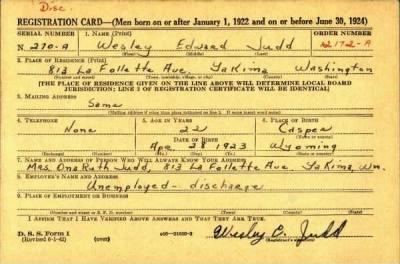 Disc.
REGISTRATION CARD—(Men born on or after January 1, 1922 and on or before June 30, 1924)
SERIAL NUMBER 1. NAME (Print) ORDER NUMBER
N. 270-A Wesley Edward Judd 12172-A
(First) (Middle) (Last)
2. PLACE OF RESIDENCE (Print)
813 La Follette Ave. Yakima Washington
(Number and street) (Town, township, village, or city) (County) (State)
[THE PLACE OF RESIDENCE GIVEN ON THE LINE ABOVE WILL DETERMINE LOCAL BOARD
JURISDICTION; LINE 2 OF REGISTRATION CERTIFICATE WILL BE IDENTICAL]
3. MAILING ADDRESS
Same
(Mailing address if other than place indicated on line 2. If same insert word same)
4. TELEPHONE 5. AGE IN YEARS 6. PLACE OF BIRTH
None 22 Casper
DATE OF BIRTH
Apr 28 1923 Wyoming
(Exchange) (Number) (Mo.) (Day) (Yr.) (State or country)
7. NAME AND ADDRESS OF PERSON WHO WILL ALWAYS KNOW YOUR ADDRESS
Mrs. Oma Ruth Judd, 813 La Follette Ave. Yakima, Wn.
8. EMPLOYER'S NAME AND ADDRESS
Unemployed - discharge
9. PLACE OF EMPLOYMENT OR BUSINESS
(Number and street or R. F. D. number) (Town) (County) (State)
I AFFIRM THAT I HAVE VERIFIED ABOVE ANSWERS AND THAT THEY ARE TRUE.
D. S. S. Form 1
(Revised 6-1-42) (over) Wesley E. Judd
(Registrant's signature)